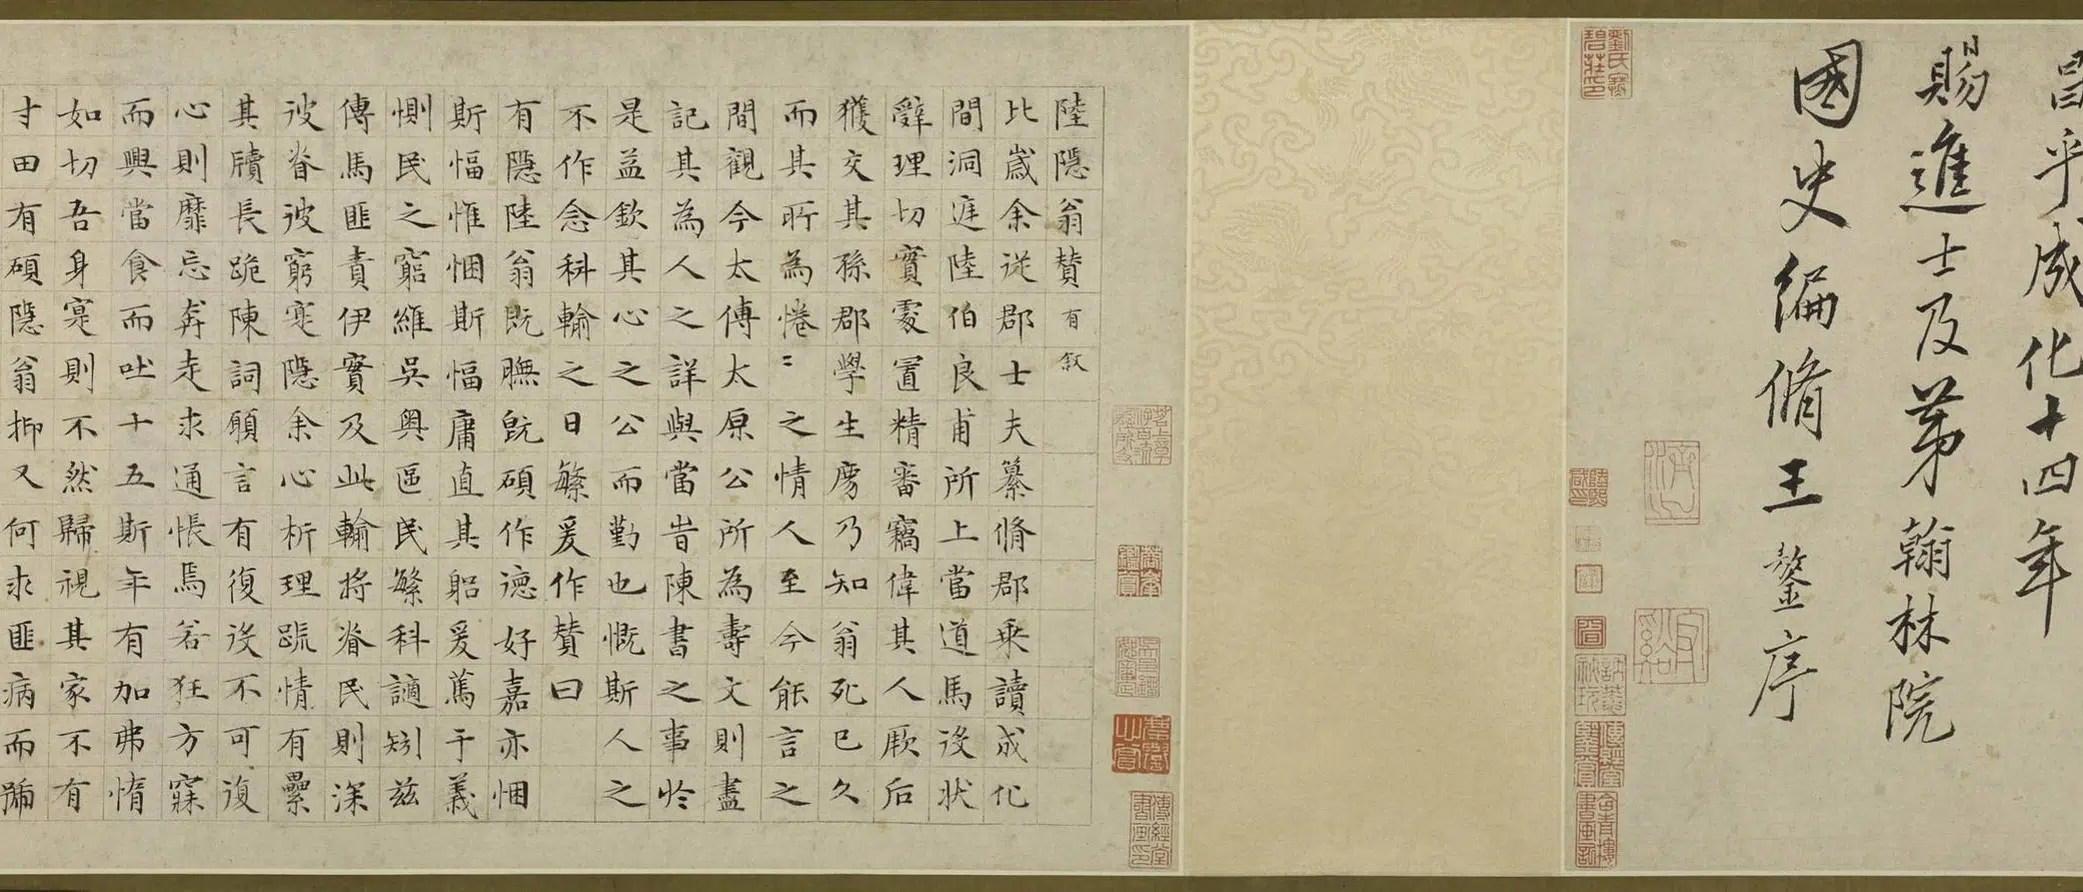 昌乎成化十四年
賜進士及第翰林院
國史編脩王鏊序
陸隱翁贊有敘
比歲余從郡士夫纂脩郡乘讀成化
間洞庭陸伯良甫所上當道馬役狀
辭理切實處置精審竊偉其人厥后
獲交其孫郡學生廖乃知翁死已久
而其所為惓〻之情人至今能言之
間觀今太傅太原公所為壽文則盡
記其為人之詳與當旹陳書之事於
是益欽其心之公而勤也慨斯人之
不作念科輸之日繁爰作贊曰
有隱陸翁既膴既碩作德好嘉亦悃
斯愊惟悃斯愊庸直其躬爰篤于義
惻民之窮維吳奧區民繁科讁矧茲
傅馬匪責伊實及此輸將眷民則深
彼眷彼窮寔隱余心析理疏情有纍
其牘長跪陳詞願言有復役不可復
心則靡忘奔走求通悵焉若狂方寐
而興當食而吐十五斯年有加弗惰
如切吾身寔則不然歸視其家不有
寸田有碩隱翁抑又何求匪病而癙